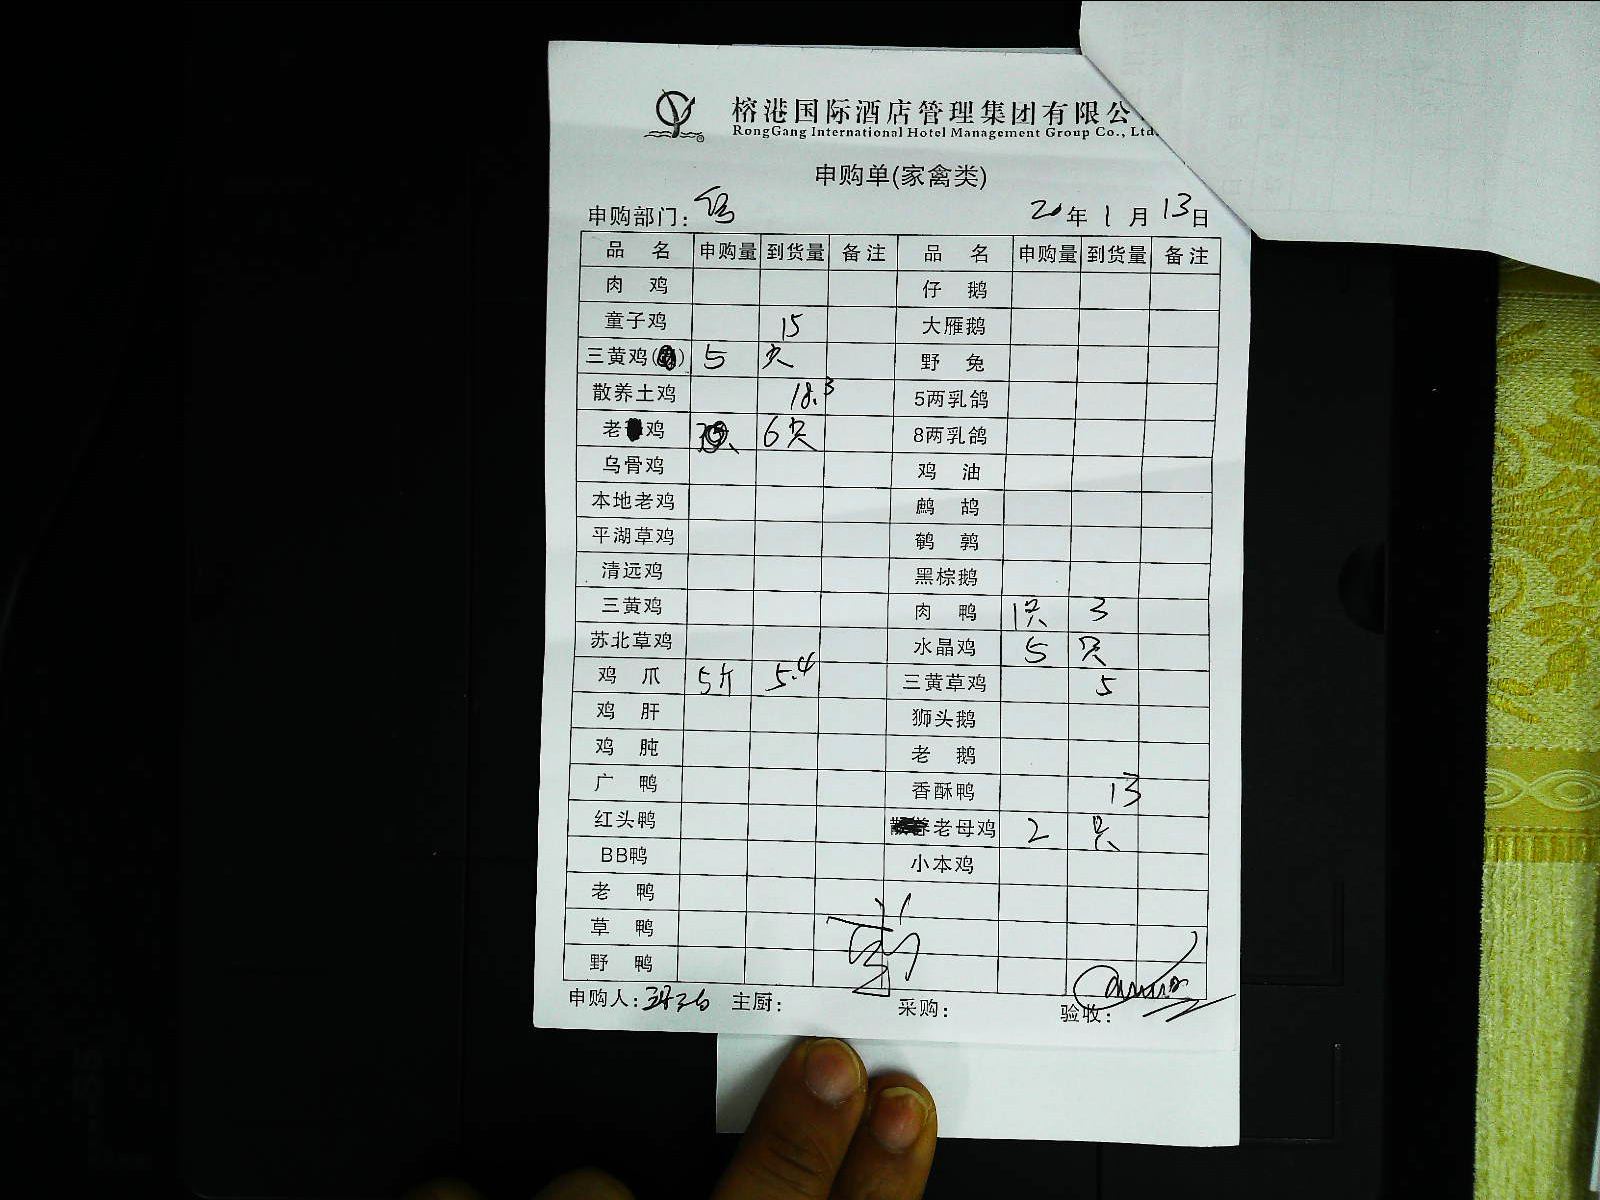 榕港国际酒店管理集团有限公
RongGang International Hotel Management Group Co., Ltd.
申购单(家禽类)
申购部门: 20年1月13日
品名 申购量 到货量 备注 品名 申购量 到货量 备注
肉鸡 仔鹅
童子鸡 15 大雁鹅
三黄鸡( ) 5 只 野兔
散养土鸡 18.3 5两乳鸽
老 鸡 6只 8两乳鸽
乌骨鸡 鸡油
本地老鸡 鹧鸪
平湖草鸡 鹌鹑
清远鸡 黑棕鹅
三黄鸡 肉鸭 1只 3
苏北草鸡 水晶鸡 5 只
鸡爪 5斤 5.4 三黄草鸡 5
鸡肝 狮头鹅
鸡肫 老鹅
广鸭 香酥鸭 13
红头鸭 老母鸡 2 只
BB鸭 小本鸡
老鸭
草鸭
野鸭
申购人: 主厨: 采购: 验收: